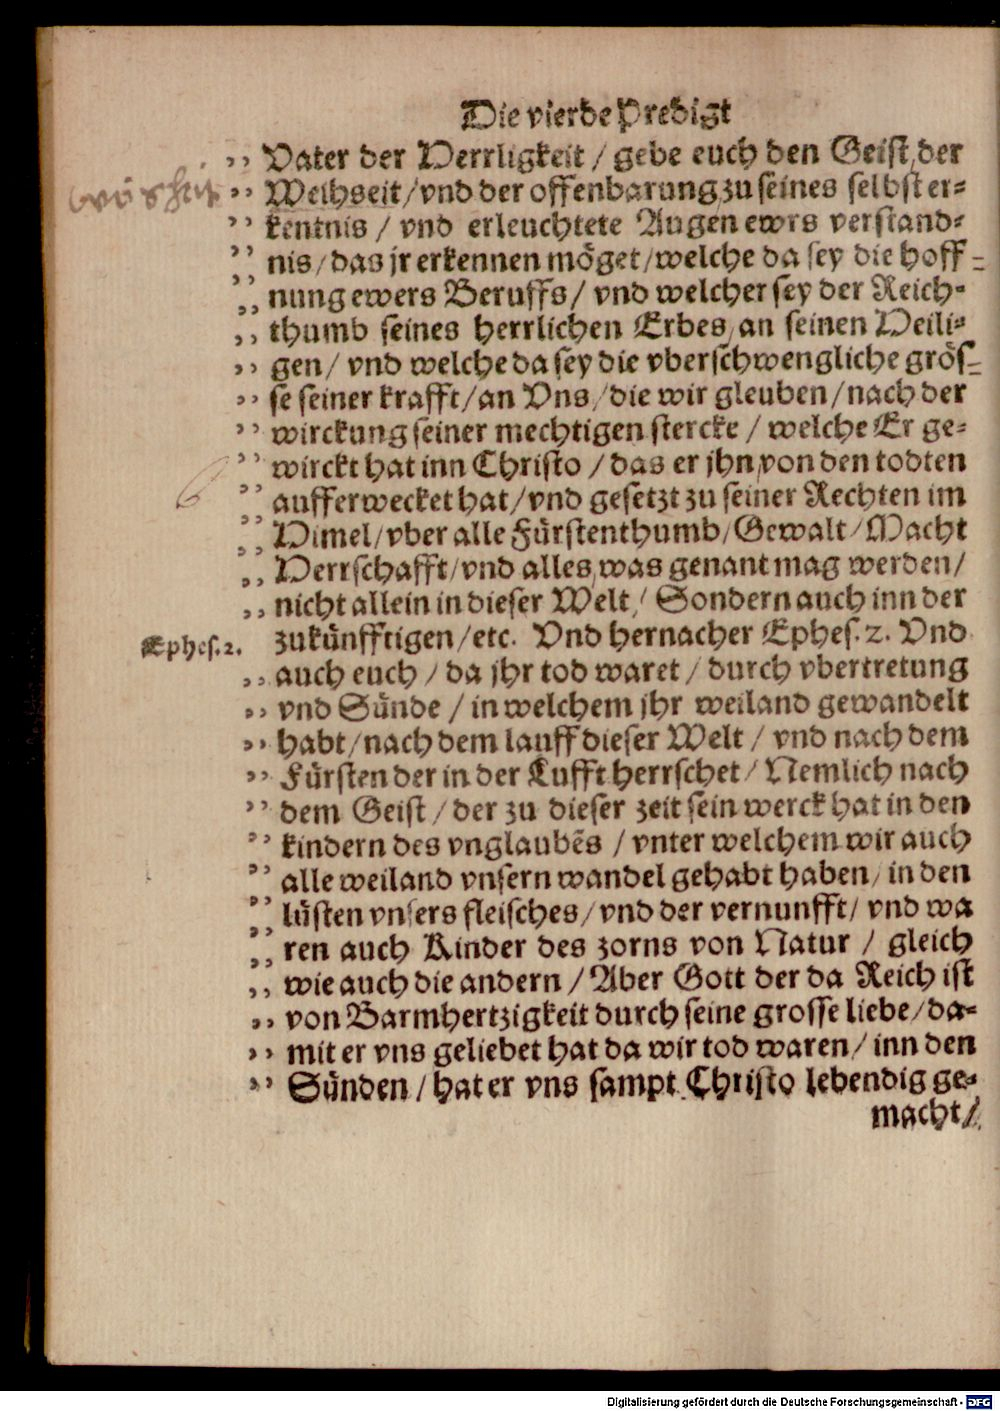 Die vierde Predigt
,, Vater der Herrligkeit / gebe euch den Geist, der
,, Weihseit/vnd der offenbarung zu seines selbst er=
,, kentnis / vnd erleuchtete Augen ewrs verstand=
,, nis/das jr erkennen möget/welche da sey die hoff=
,, nung ewers Beruffs/ vnd welcher sey der Reich=
,, thumb seines herrlichen Erbes, an seinen Heili=
,, gen/ vnd welche da sey die vberschwengliche grös=
,, se seiner krafft/an Vns/die wir gleuben/nach der
,, wirckung seiner mechtigen stercke / welche Er ge=
,, wirckt hat inn Christo / das er jhn von den todten
,, aufferwecket hat/vnd gesetzt zu seiner Rechten im
,, Himel/vber alle Fürstenthumb/Gewalt/Macht
,, Herrschafft/vnd alles, was genant mag werden/
,, nicht allein in dieser Welt/ Sondern auch inn der
Ephes. 2. zukünfftigen/etc. Vnd hernacher Ephes. 2. Vnd
,, auch euch / da jhr tod waret / durch vbertretung
,, vnd Sünde / in welchem jhr weiland gewandelt
,, habt/nach dem lauff dieser Welt / vnd nach dem
,, Fürsten der in der Lufft herrschet/ Nemlich nach
,, dem Geist / der zu dieser zeit sein werck hat in den
,, kindern des vnglaubēs / vnter welchem wir auch
,, alle weiland vnsern wandel gehabt haben/ in den
,, lüsten vnsers fleisches/vnd der vernunfft/ vnd wa
,, ren auch Kinder des zorns von Natur / gleich
,, wie auch die andern / Aber Gott der da Reich ist
,, von Barmhertzigkeit durch seine grosse liebe/da=
,, mit er vns geliebet hat da wir tod waren/ inn den
,, Sünden / hat er vns sampt Christo lebendig ge=
macht/
Digitalisierung gefördert durch die Deutsche Forschungsgemeinschaft - DFG